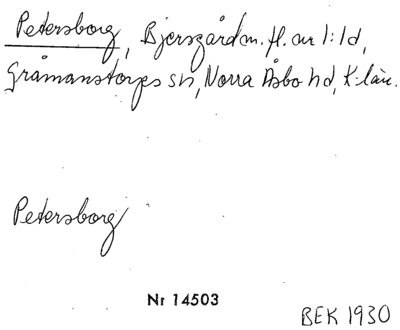 Petersborg, Bjersgård m. fl. nr 1:1d,
Gråmanstorps sn, Norra Åsbo hd, K-län.
Petersborg
Nr 14503
BEK 1930